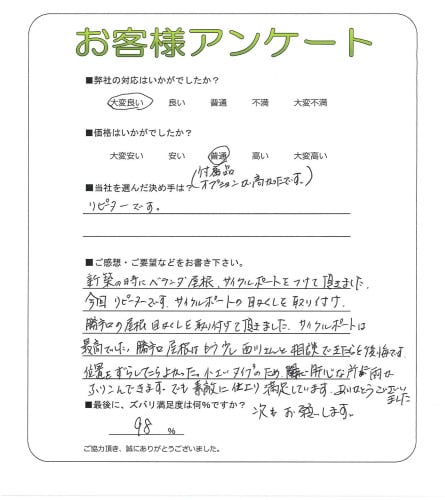 お客様アンケート
■弊社の対応はいかがでしたか?
大変良い 良い 普通 不満 大変不満
■価格はいかがでしたか?
大変安い 安い 普通 高い 大変高い
(付属品
オプションで高かったです。)
■当社を選んだ決め手は?
リピターです。
■ご感想・ご要望などをお書き下さい。
新築の時にベランダ屋根、サイクルポートをつけて頂きました。
今回リピターです。サイクルポートの目かくしを取り付け、
勝手口の屋根目かくしを取り付けて頂きました。サイクルポートは
最高でした。勝手口屋根はもう少し西川さんと相談できたらと後悔です。
位置をずらしたらよかった。小さいタイプのため 肝心な所 雨が
ふりこんできます。でも素敵に仕上り満足しています。ありがとうございました
■最後に、ズバリ満足度は何%ですか?
98 %
次もお願いします。
ご協力頂き、誠にありがとうございました。